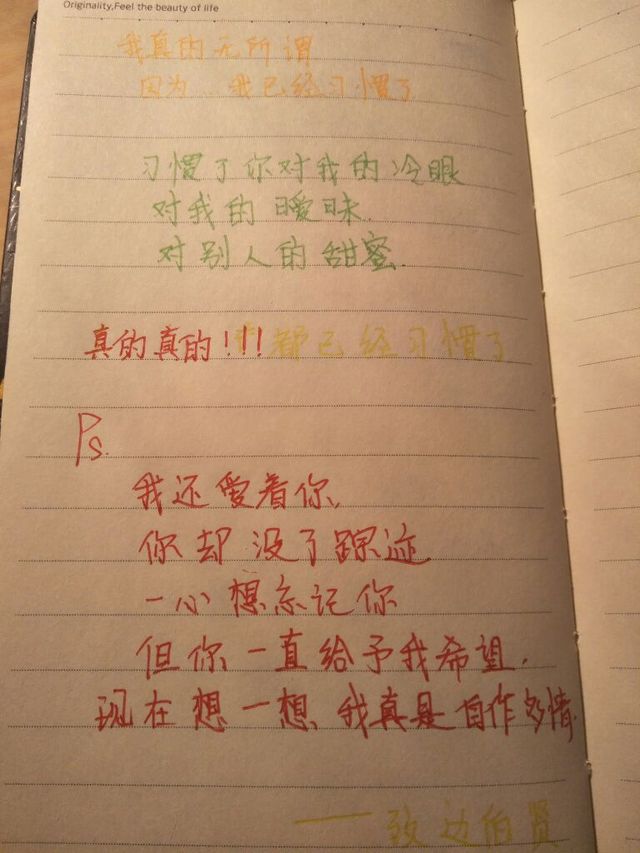 Originality,Feel the beauty of life
我真的无所谓
因为..我已经习惯了
习惯了你对我的冷眼
对我的暧昧.
对别人的甜蜜.
真的真的!!!都已经习惯了
Ps.
我还爱着你,
你却没了踪迹.
一心想忘记你
但你一直给予我希望.
现在想一想、我真是自作多情.
——致边伯贤